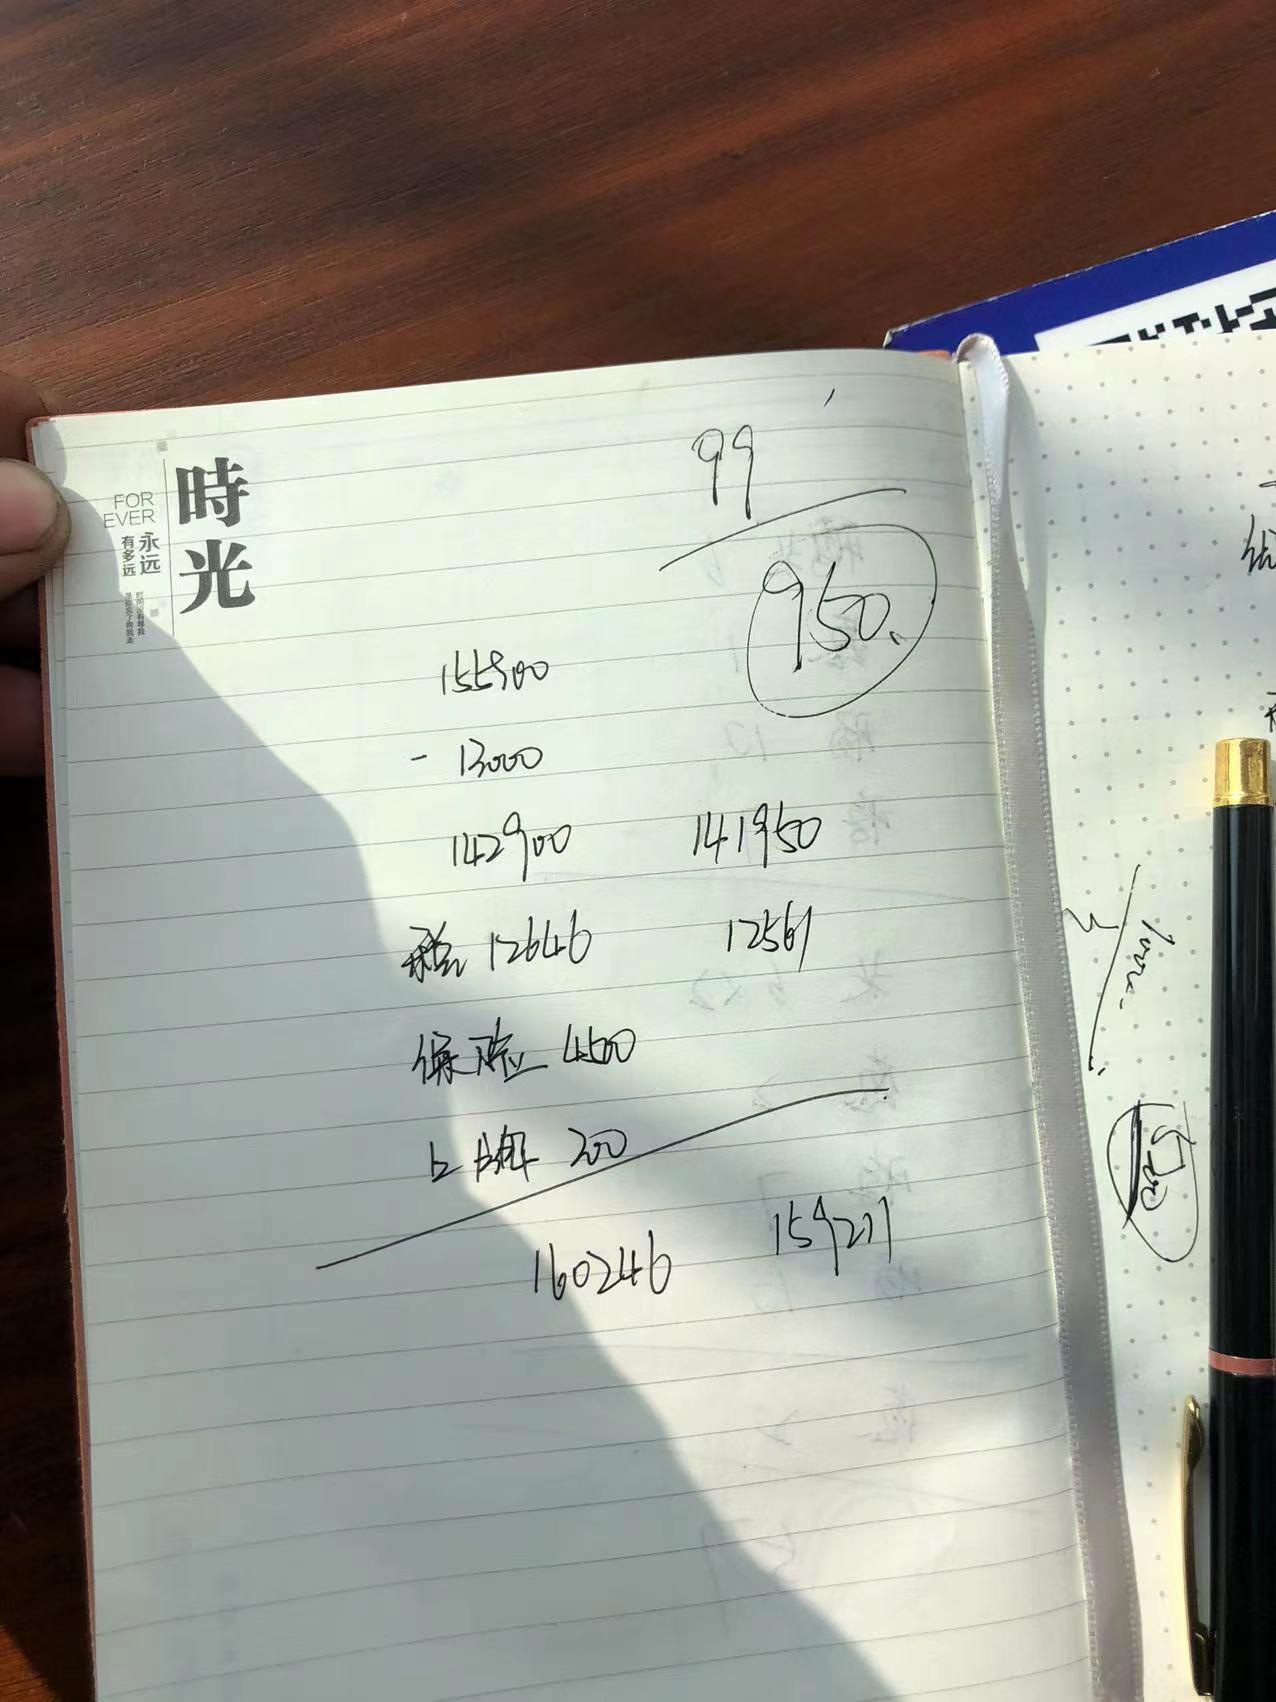 時光
FOR
EVER
永远
有多远
99
950.
155900
- 13000
142900 141950
税 12646 12561
保险 4500
上牌 200
160246 159211